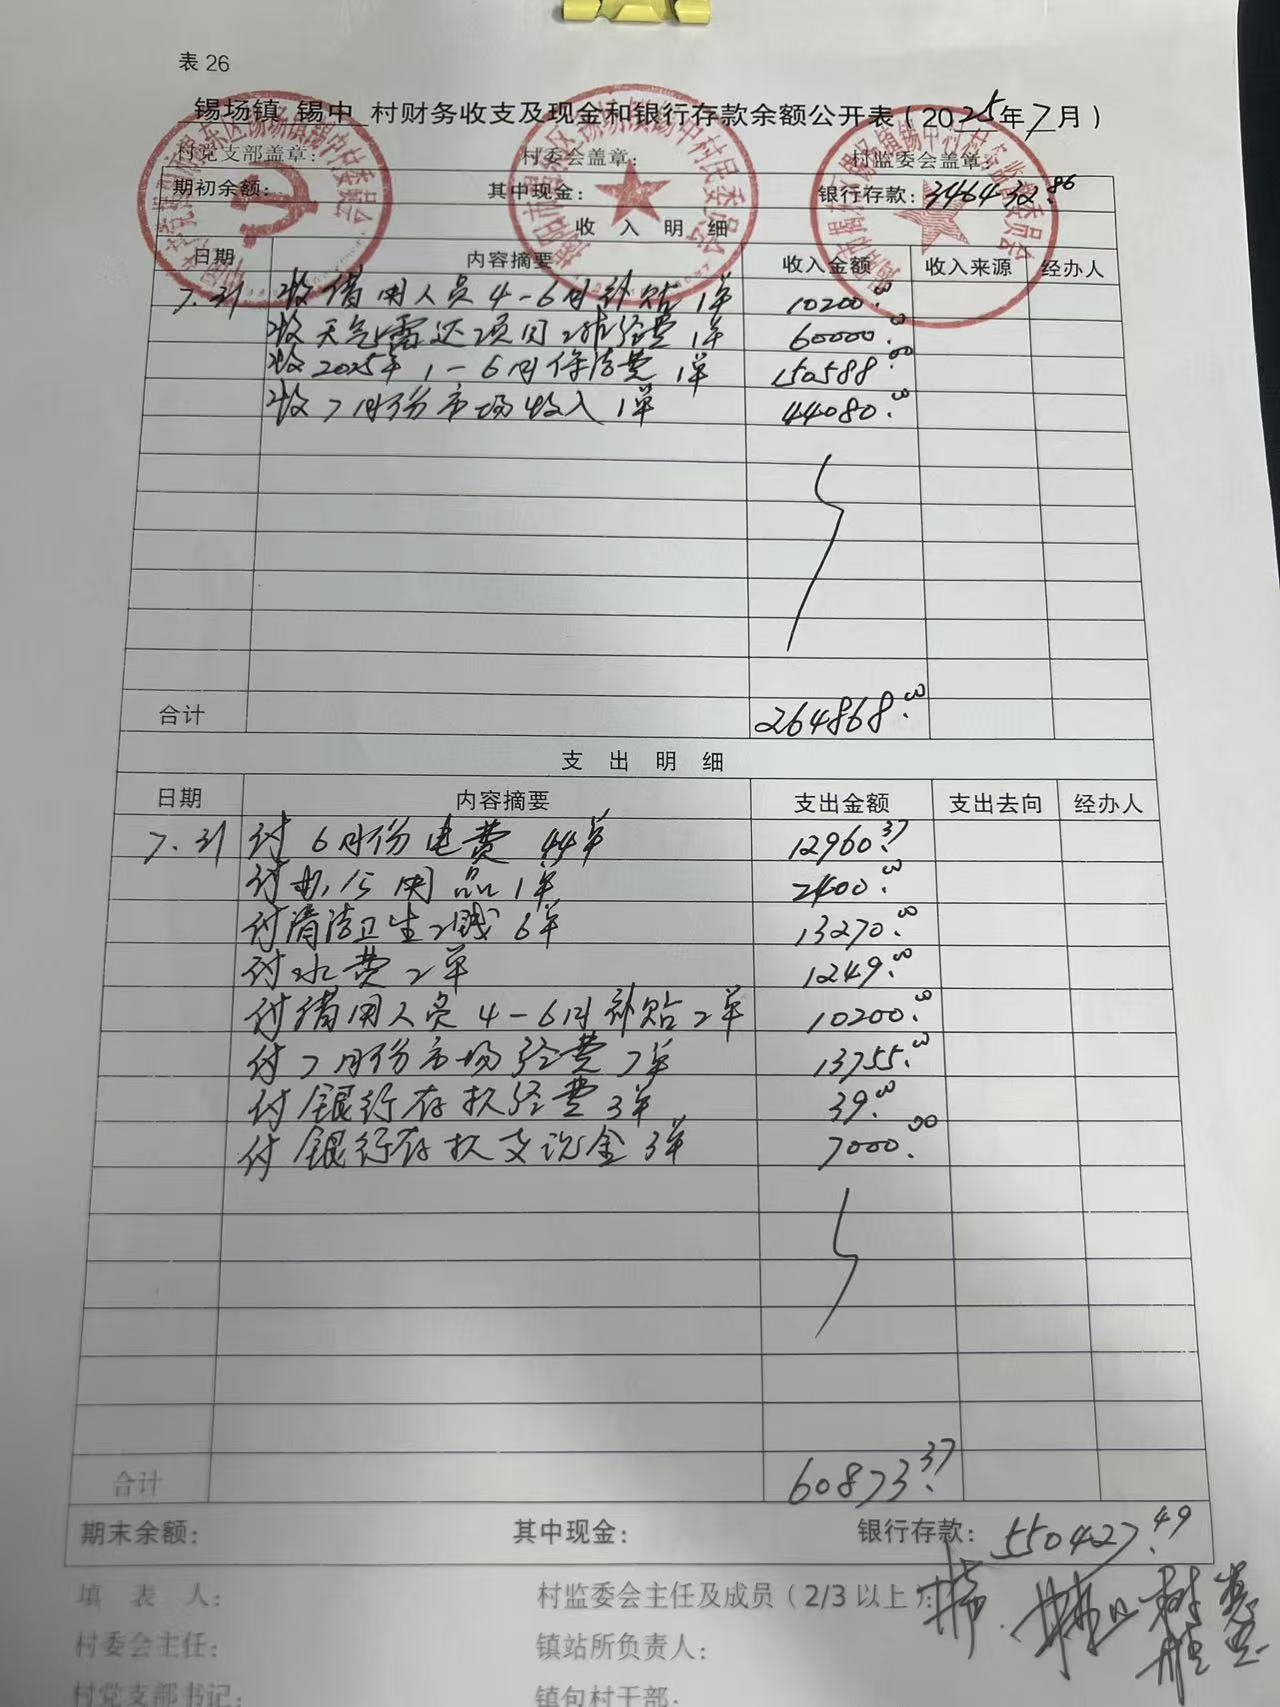 表 26
锡场镇 锡中 村财务收支及现金和银行存款余额公开表(2025年7月)
村党支部盖章: 村委会盖章: 村监委会盖章:
期初余额: 其中现金: 银行存款: 346432.86
收 入 明 细
日期 内容摘要 收入金额 收入来源 经办人
7.31 收借用人员4-6月补贴1单 10200.00
收天气雷达项目工作经费1单 60000.00
收2025年1-6月保洁费1单 150588.00
收7月份市场收入1单 44080.00
合计 264868.00
支 出 明 细
日期 内容摘要 支出金额 支出去向 经办人
7.31 付6月份电费44单 12960.37
付办公用品1单 2400.00
付清洁卫生工钱6单 13270.00
付水费2单 1249.00
付借用人员4-6月补贴2单 10200.00
付7月份市场经费7单 13755.00
付银行存款经费3单 39.00
付银行存款支 金3单 7000.00
合计 60873.37
期末余额: 其中现金: 银行存款: 550427.49
填 表 人: 村监委会主任及成员(2/3以上):
村委会主任: 镇站所负责人:
村党支部书记: 镇包村干部: